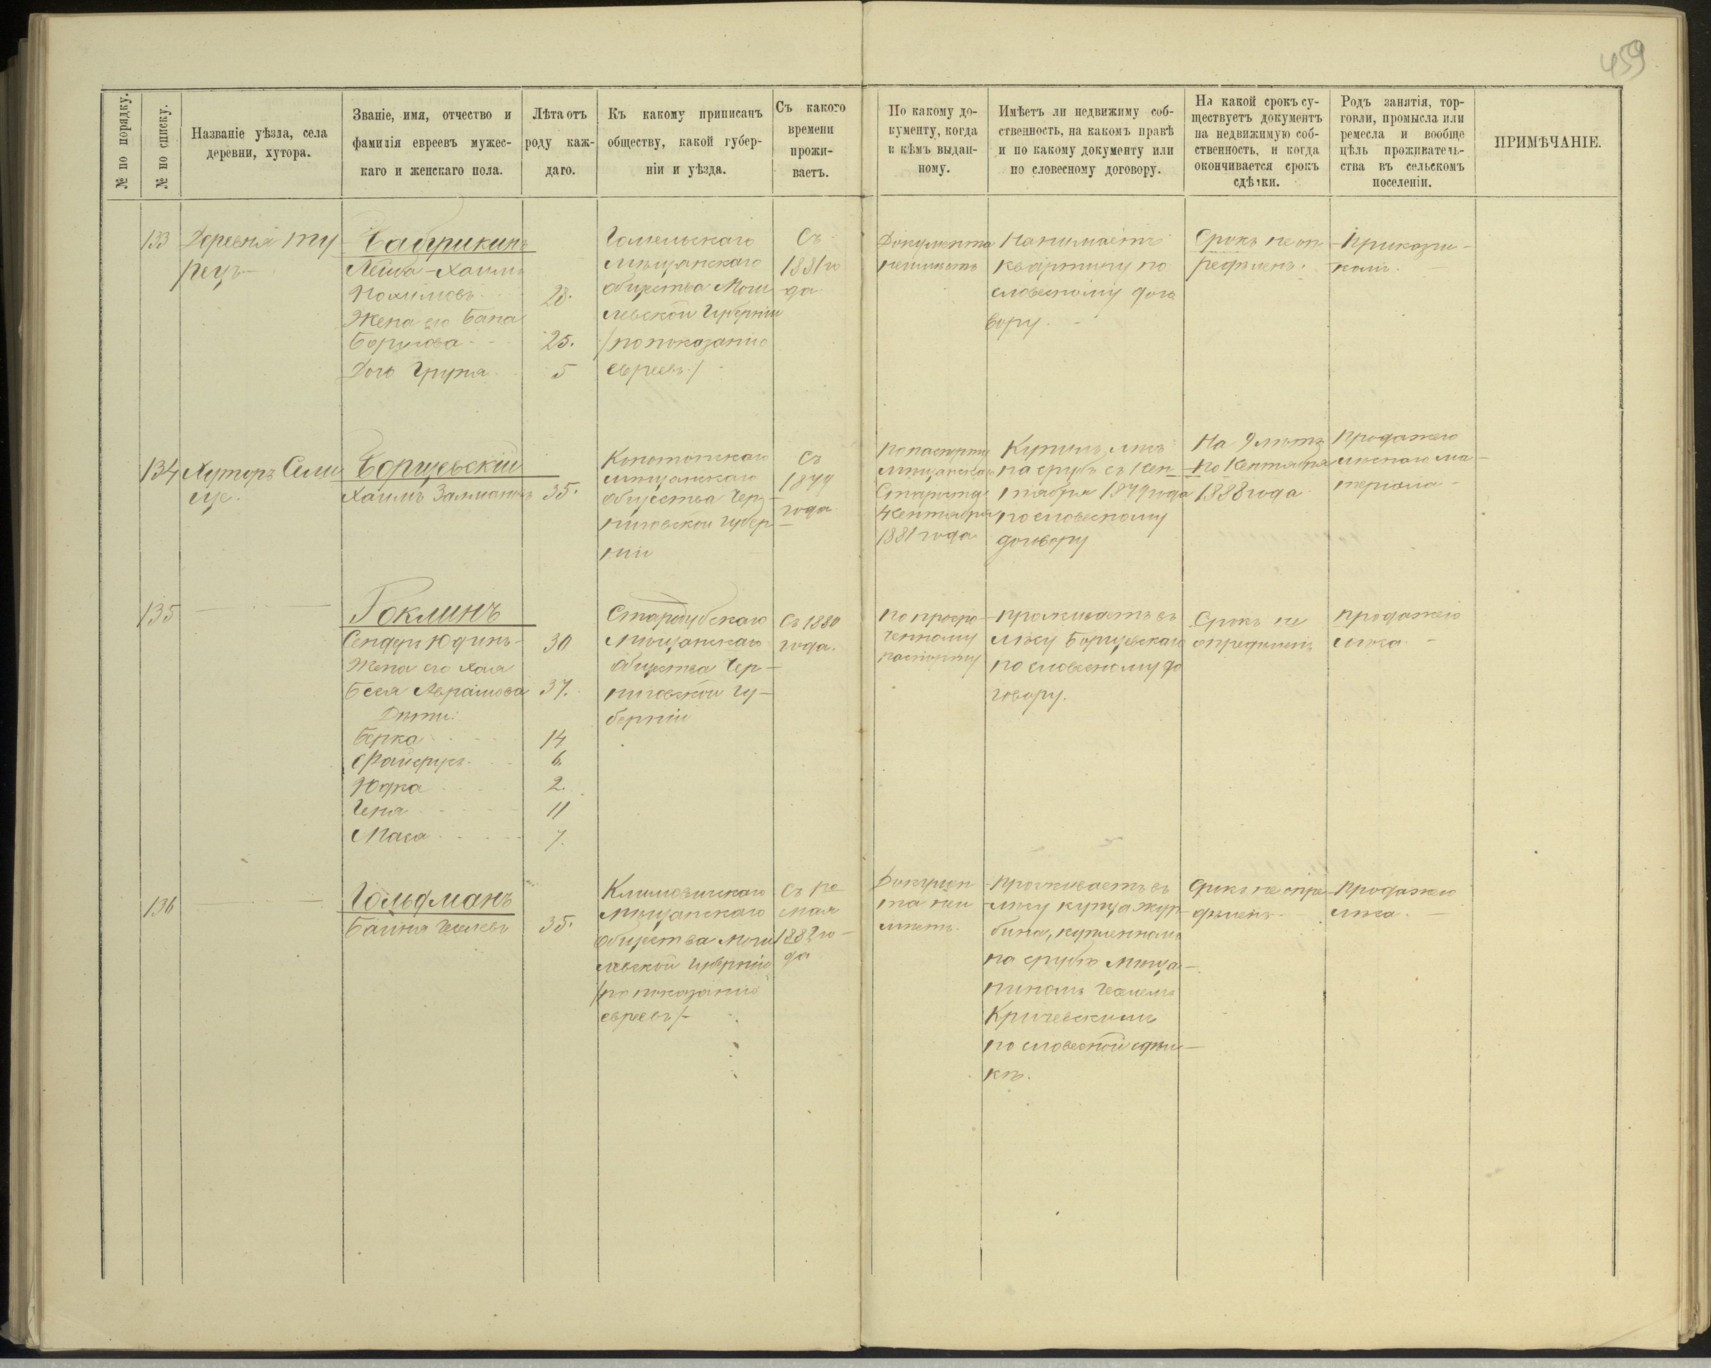 459
№ по порядку.
№ по списку.
Названіе уѣзда, села
деревни, хутора.
Званіе, имя, отчество и
фамилія евреевъ мужес-
каго и женскаго пола.
Лѣта отъ
роду каж-
даго.
Къ какому приписанъ
обществу, какой губер-
ніи и уѣзда.
Съ какого
времени
прожи-
ваетъ.
По какому до-
кументу, когда
и кѣмъ выдан-
ному.
Имѣетъ ли недвижиму соб-
ственность, на какомъ правѣ
и по какому документу или
по словесному договору.
На какой срокъ су-
ществуетъ документъ
на недвижимую соб-
ственность, и когда
окончивается срокъ
сдѣлки.
Родъ занятія, тор-
говли, промысла или
ремесла и вообще
цѣль проживатель-
ства въ сельскомъ
поселеніи.
ПРИМѢЧАНІЕ.
133
Деревня Ту
рецъ
Жена его
Борухова
Дочь
28.
25.
5
Гомельскаго
мѣщанскаго
общества Моги
левской Губерніи
/по показанію
евреевъ/
Съ
1881 го
да
Документа
неимѣетъ
Нанимаетъ
квартиру по
словесному дого
вору.
Срокъ не оп
редѣленъ.
Прикащи-
комъ.
134
Хуторъ
Борщевскій
Хаимъ Залмановъ
35.
Конотопскаго
мѣщанскаго
общества Чер-
ниговской Губер
ніи
Съ
1879
года
По паспорту
мѣщанскаго
Старосты
Сентября
1881 года
Купилъ лѣсъ
на срубъ съ 1 Сен
тября 1879 года
по словесному
договору
На 9 лѣтъ
по 1 Сентября
1888 года
Продажею
лѣснаго ма-
теріала
135
Гоклинъ
Сендеръ Юдинъ
Жена его Хая
Бейля Абрамова
Дѣти:
Берка
Файфушъ
Юдка
Геня
Маса
30
37.
14
6.
2.
11
7.
Стародубскаго
мѣщанскаго
общества Чер-
ниговской Гу-
берніи
Съ 1880
года.
По просро
ченному
паспорту
Проживаетъ въ
лѣсу Борщевскаго
по словесному до
говору.
Срокъ не
опредѣленъ
Продажею
лѣса.
136
Гольдманъ
35.
Климовичскаго
мѣщанскаго
общества Моги
левской Губерніи
/по показанію
евреевъ/
Съ 1го
мая
1882 го
да
Докумен
та неи
мѣетъ.
Проживаетъ въ
лѣсу купца Жур
бина, купленномъ
на срубъ мѣща-
ниномъ
Кричевскимъ
по словесной сдѣл-
кѣ.
Срокъ не опре
дѣленъ
Продажею
лѣса.